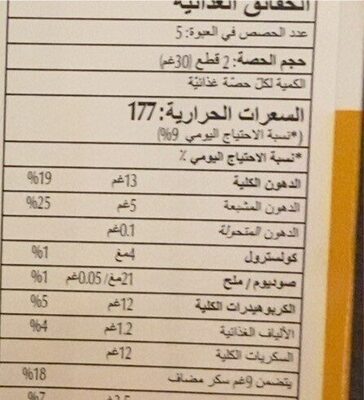 الحقائق الغذائية
عدد الحصص في العبوة: 5
حجم الحصة: 2 قطع (30غم)
الكمية لكل حصّة غذائيّة
السعرات الحرارية: 177
(*نسبة الاحتياج اليومي 9%)
*نسبة الاحتياج اليومي ٪
الدهون الكلية 13غم 19%
الدهون المشبعة 5غم 25%
الدهون المتحولة 0.1غم
كولسترول 4مغ 1%
صوديوم / ملح 21مغ/0.05غم 1%
الكربوهيدرات الكلية 12غم 5%
الألياف الغذائية 1.2غم 4%
السكريات الكلية 12غم
يتضمن 9غم سكر مضاف 18%
3.5غم 7%